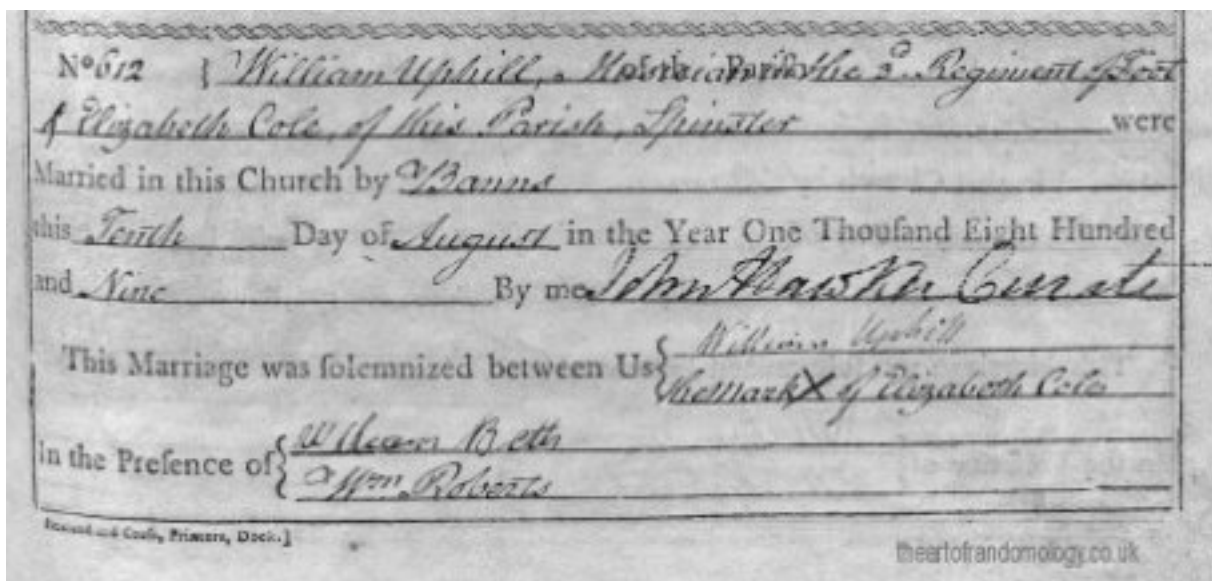 No 612 { William Uphill, Musician in the 3d. Regiment of Foot
& Elizabeth Cole, of this Parish, Spinster were
Married in this Church by Banns
this Tenth Day of August in the Year One Thouſand Eight Hundred
and Nine By me John Hawker Curate
This Marriage was ſolemnized between Us {
William Uphill
the Mark X of Elizabeth Cole
In the Preſence of {
Wm Roberts
Printers, Dock.]
theartofrandomology.co.uk